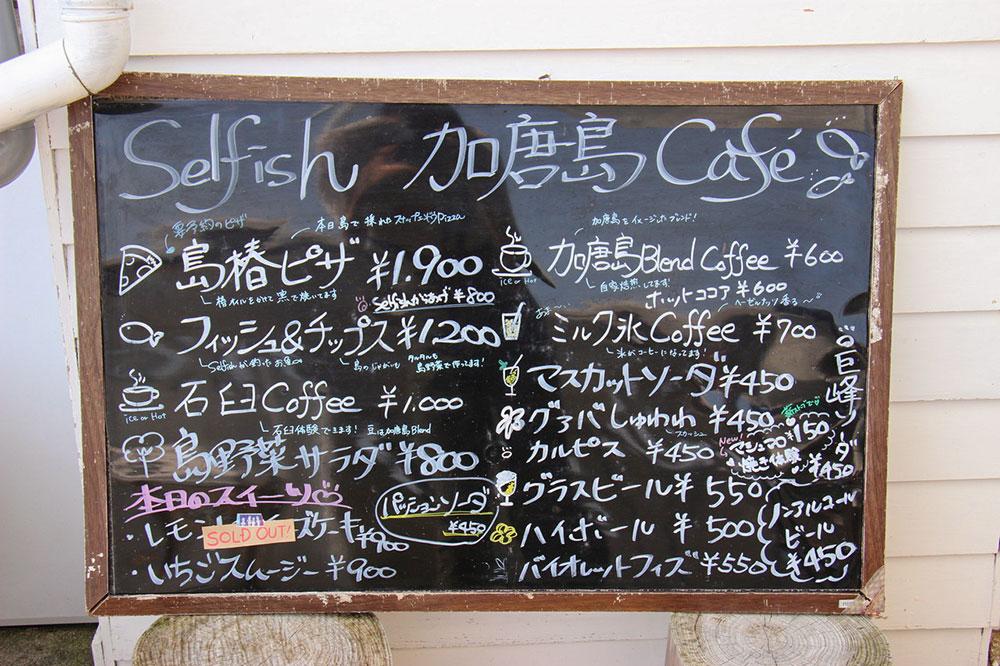 Selfish 加唐島 Café
要予約のピザ
本日島で採れた
島椿ピザ ¥1.900
椿オイルをかけて窯で焼いてます
Selfishからあげ ¥800
フィッシュ&チップス ¥1200
Selfishが釣ったお魚
島のじゃがいも
タルタルも島野菜で作ってます!
石臼Coffee ¥1.000
ice or Hot
石臼体験できます! 豆は加唐島Blend
島野菜サラダ ¥800
本日のスイーツ
・レモン ーズケーキ ¥900
SOLD OUT!
・いちごスムージー ¥900
パッションソーダ
¥450
加唐島をイメージしたブレンド!
加唐島Blend Coffee ¥600
ice or Hot
自家焙煎してます!
ホットココア ¥600
ヘーゼルナッツ香る〜
ミルク氷Coffee ¥700
氷がコーヒーになってます!
マスカットソーダ ¥450
グァバしゅわわ ¥450
スカッシュ
カルピス ¥450
New!
マシュマロ ¥150
焼き体験
グラスビール ¥550
ハイボール ¥500
バイオレットフィズ ¥550
巨峰ソーダ
¥450
ノンアルコール
ビール
¥450